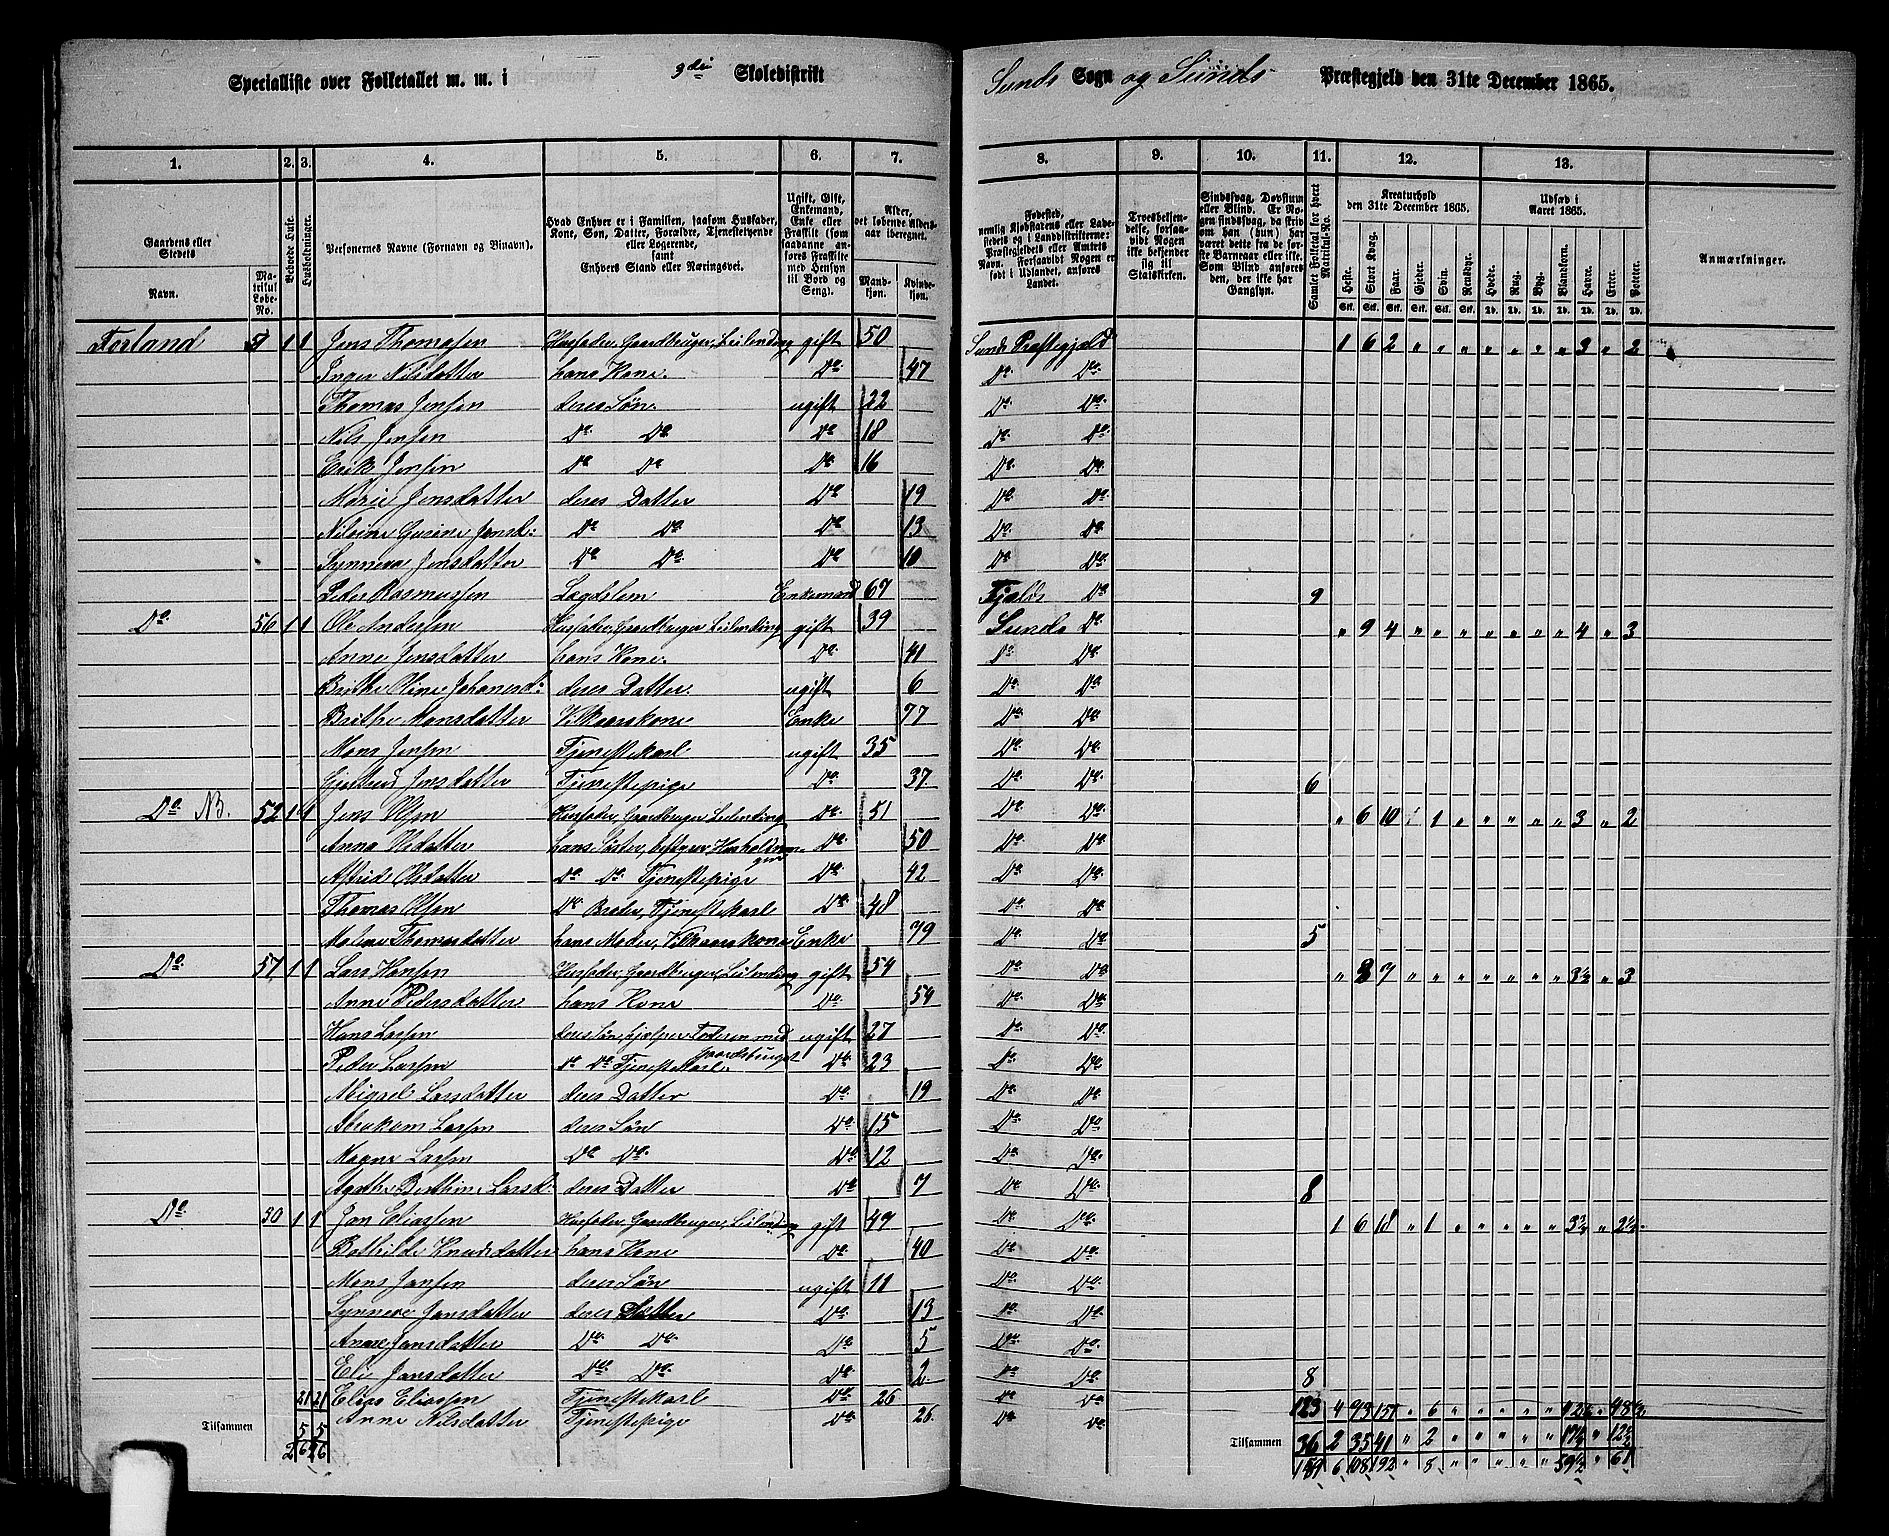 Specialliste over Folketallet m. m. i 9de Skoledistrikt Sunds Sogn og Sunds Præstegjeld den 31te December 1865.
1. 2. 3. 4. 5. 6. 7. 8. 9. 10. 11. 12. 13.
Gaardens eller Stedets Navn.
Matrikul Løbe-No.
Beboede Huse.
Husholdninger.
Personernes Navne (Fornavn og Binavn).
Hvad Enhver er i Familien, saasom Husfader, Kone, Søn, Datter, Forældre, Tjenestetyende eller Logerende, samt Enhvers Stand eller Næringsvei.
Ugift, Gift, Enkemand, Enke eller Fraskilt (som saadanne anføres Fraskilte med Hensyn til Bord og Seng).
Alder, det løbende Aldersaar iberegnet.
Mandkjøn. Kvindekjøn.
Fødested, nemlig Kjøbstadens eller Ladestedets og i Landdistrikterne: Præstegjeldets eller Amtets Navn. Forsaavidt Nogen er født i Udlandet, anføres Landet.
Troesbekjendelse, forsaavidt Nogen ikke bekjender sig til Statskirken.
Sindssvag, Døvstum eller Blind. Er Nogen sindssvag, da skriv om han (hun) har været dette fra de første Barneaar eller ikke. Som Blind anføres den, der ikke har Gangsyn.
Samlet Folketal for hvert Matrikul-No.
Kreaturhold den 31te December 1865.
Heste. Stort Kvæg. Faar. Gjeder. Svin. Rensdyr.
Udsæd i Aaret 1865.
Hvede. Rug. Byg. Blandkorn. Havre. Erter. Poteter.
Anmærkninger.
Forland 51 1 1 Jens Thomassen Husfader, Gaardbruger, Leilending gift 50 Sunds Præstegjeld 1 6 2 " " " " " " " 3 " 2
Inger Nilsdatter hans Kone. Do. 47 Do. Do.
Thomas Jensen deres Søn. ugift 22 Do. Do.
Nils Jensen Do. Do. Do 18 Do. Do.
Erik Jensen Do Do Do. 16 Do. Do.
Marie Jensdatter deres Datter Do 19 Do. Do.
Nilsine Gurine Jensd: Do Do. Do 13 Do. Do.
Synneva Jensdatter Do Do. Do 10 Do. Do.
Peder Rasmussen Lægdslem Enkemand 67 Fjelds Do 9
Do. 56 1 1 Ole Andersen Husfader, Gaardbruger Leilending gift 39 Sunds Do. " 9 4 " " " " " " " 4 " 3
Anne Jensdatter hans Kone. Do. 41 Do. Do.
Brithe Oline Johanesd: deres Datter. ugift 6 Do. Do.
Brithe Monsdatter Vilkaarskone Enke 77 Do. Do.
Mons Jensen Tjenestekarl ugift 35 Do. Do.
Jensdatter Tjenestepige Do. 37. Do. Do. 6
Do. NB. 52 1 1 Jens Olsen Husfader, Gaardbruger Leilending Do. 51 Do. Do. " 6 10 " 1 " " " " " 3 " 2
Anna Olsdatter hans Søster, bestyrer Husholdningen Do. 50 Do. Do.
Astrid Olsdatter Do. Do. Tjenestepige Do. 42 Do. Do.
Thomas Olsen Do. Broder, Tjenestekarl Do. 48 Do. Do.
Malene Thomasdatter hans Moder, Vilkaarskone Enke 79 Do. Do. 5
Do. 57 1 1 Lars Hansen Husfader, Gaardbruger, Leilending gift 54 Do. Do " 8 7 " " " " " " " 3½ " 3
Anne Pedersdatter hans Kone Do. 54 Do. Do.
Hans Larsen deres Søn, hjelper Faderen med Gaardsbruget ugift 27 Do. Do.
Peder Larsen Do Do Tjenestekarl. Do. 23 Do. Do.
Migsel Larsdatter deres Datter Do. 19 Do. Do.
Abraham Larsen deres Søn Do. 15 Do. Do.
Magne Larsen Do Do. Do 12 Do. Do.
Agathe Berthine Larsd: deres Datter Do 7 Do. Do. 8
Do. 50 1 1 Jan Eliassen Husfader, Gaardbruger, Leilending gift 49 Do. Do. 1 6 18 " 1 " " " " " 3½ " 2½
Bothilde Knudsdatter hans Kone Do. 40 Do. Do.
Mons Jansen deres Søn ugift 11 Do. Do.
Synneve Jansdatter deres Datter Do. 13 Do. Do.
Anne Jansdatter Do. Do. Do. 5 Do. Do.
Eli Jansdatter Do. Do. Do. 2. Do. Do. 8
21 21 Elias Eliassen Tjenestekarl Do. 26 Do Do. 123 4 73 151 " 6 " " " " "
Tilsammen 5 5 Anne Nilsdatter Tjenestepige Do. 26. Do. Do. Tilsammen 36 2 35 41 " 2 " " " " " 17½ " 12½
26 26 159 6 108 192 " 8 " " " " " 59½ " 61